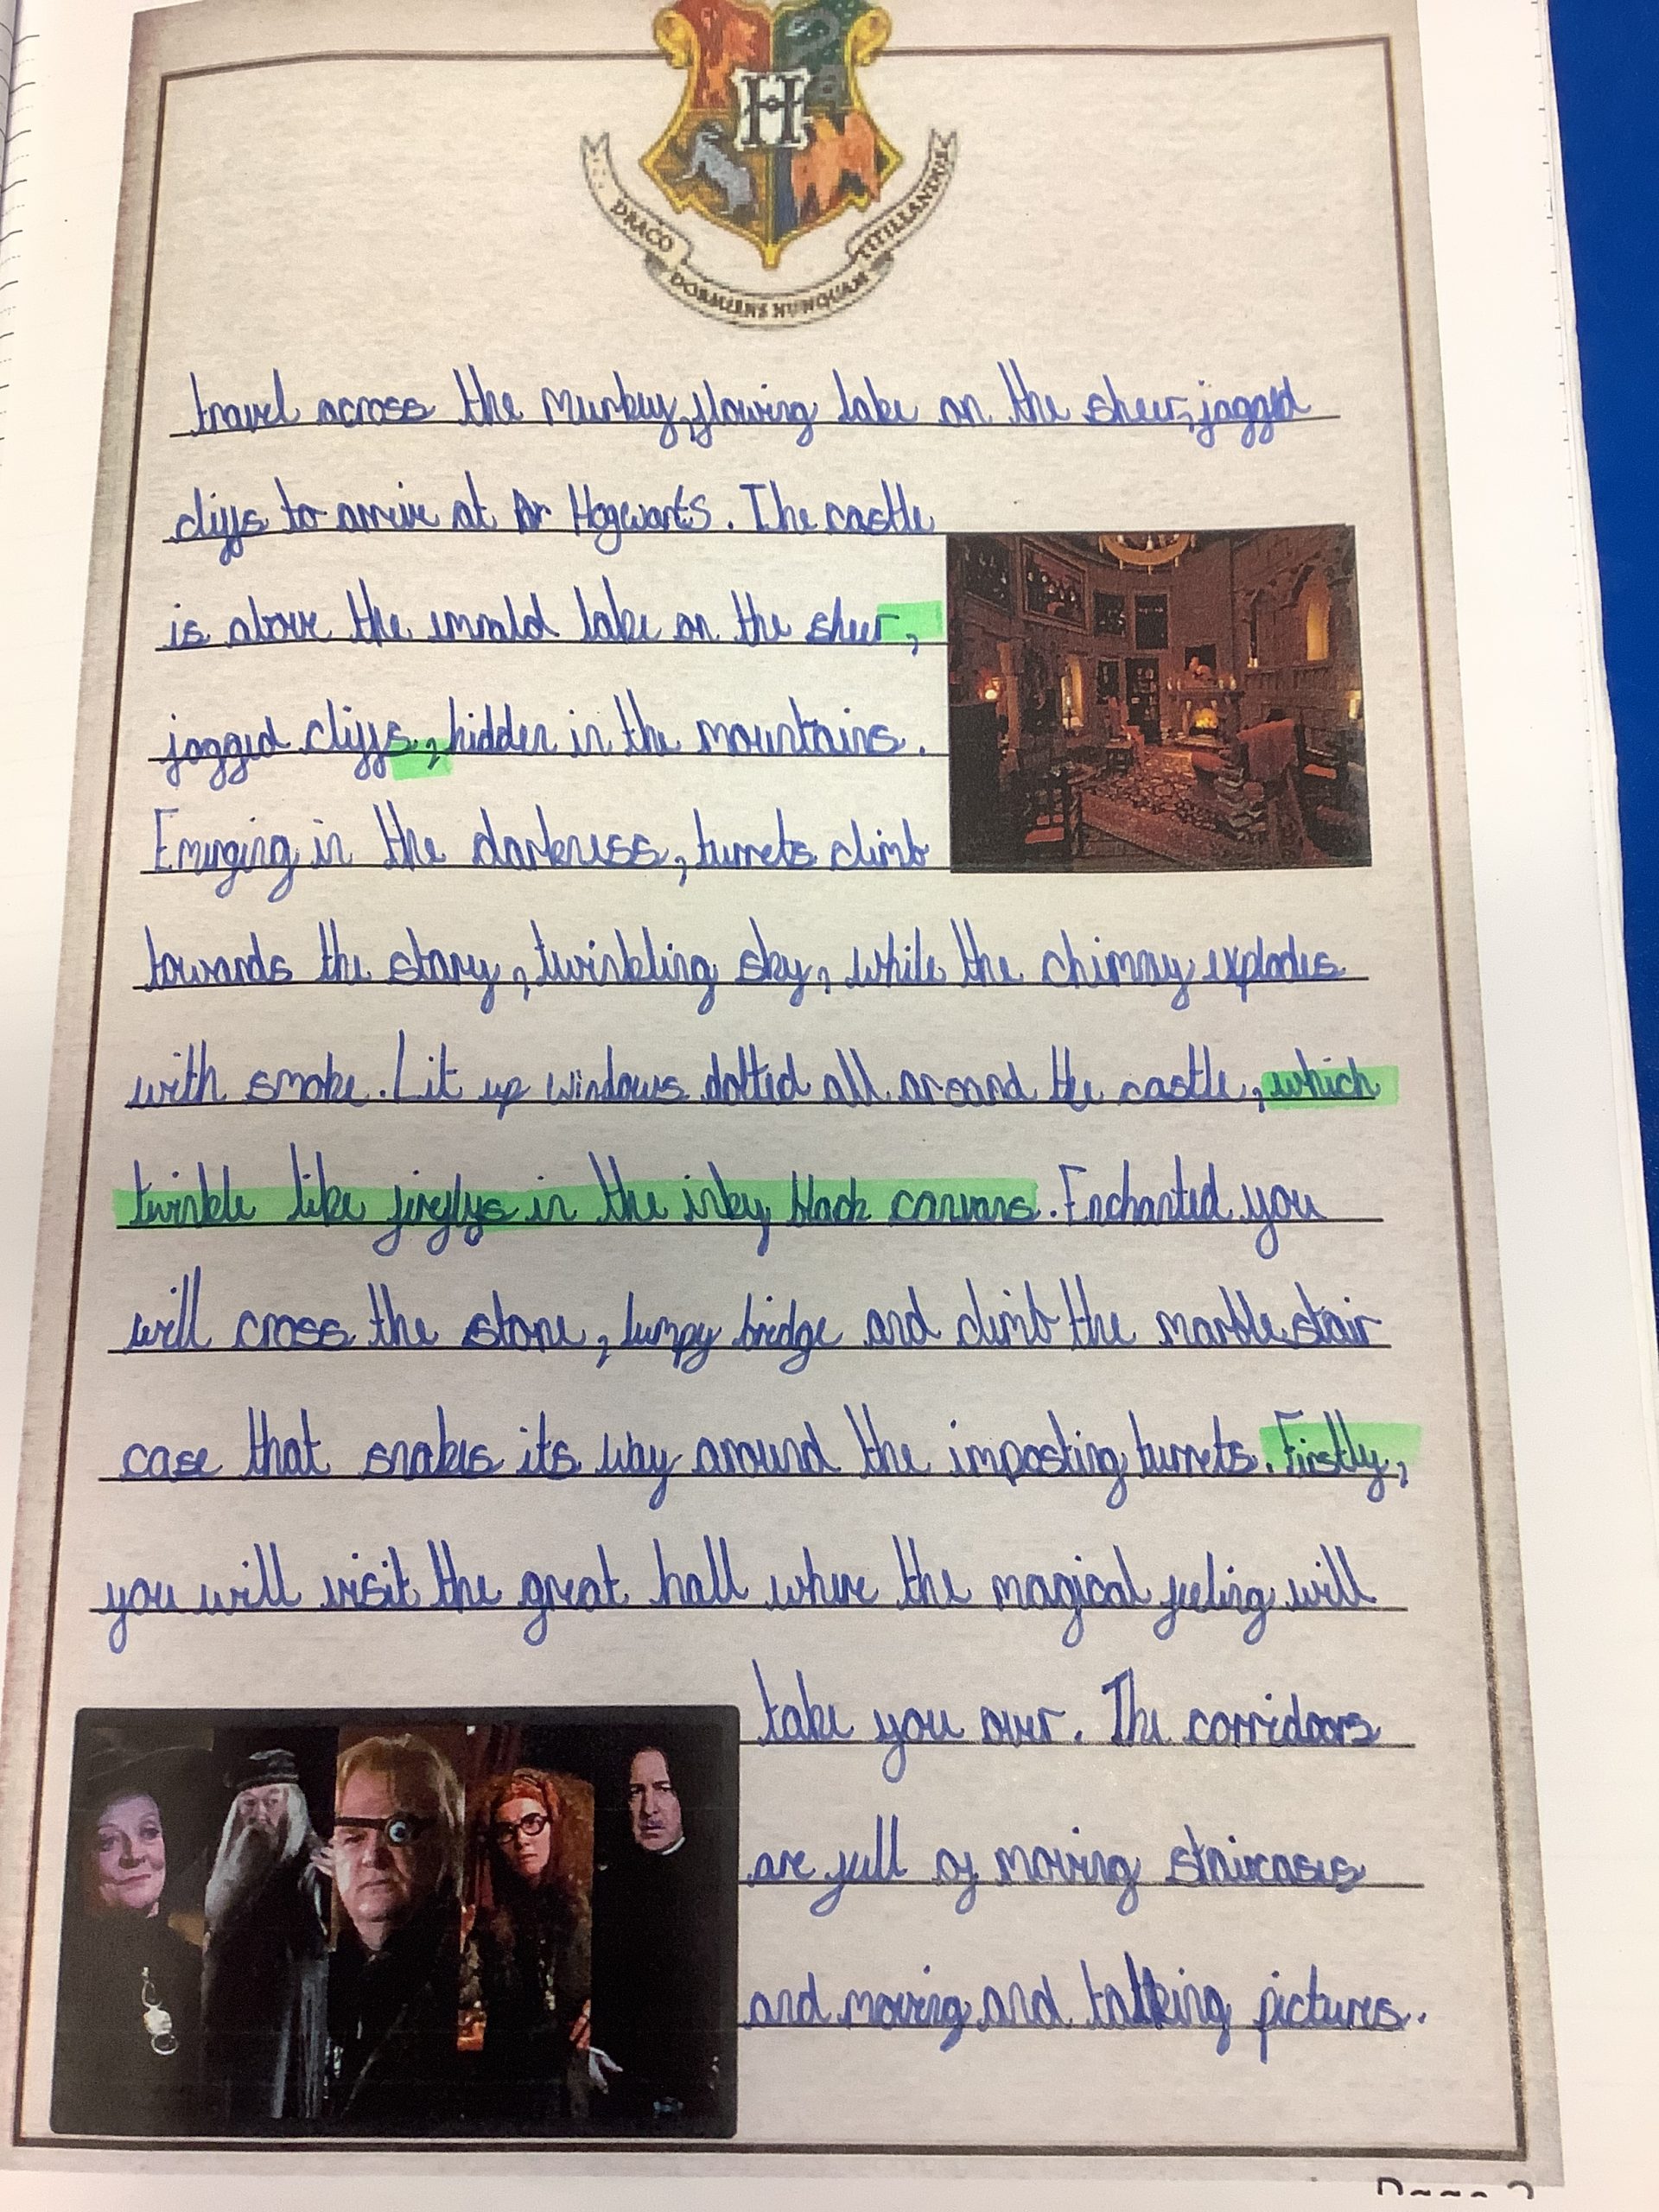 H
DRACO DORMIENS NUNQUAM TITILLANDUS
travel across the murkey, flowing lake on the sheer, jagged
cliffs to arrive at Hogwarts. The castle
is above the emrald lake on the sheer,
jagged cliffs, hidden in the mountains.
Emerging in the darkness, turrets climb
towards the stary, twinkling sky, while the chimny explodes
with smoke. Lit up windows dotted all around the castle, which
twinkle like fireflys in the inky black canvans. Enchanted you
will cross the stone, lumpy bridge and climb the marble stair
case that snakes its way around the imposting turrets. Firstly,
you will visit the great hall where the magical feeling will
take you over. The corridoors
are full of moving staircases
and moving and talking pictures.